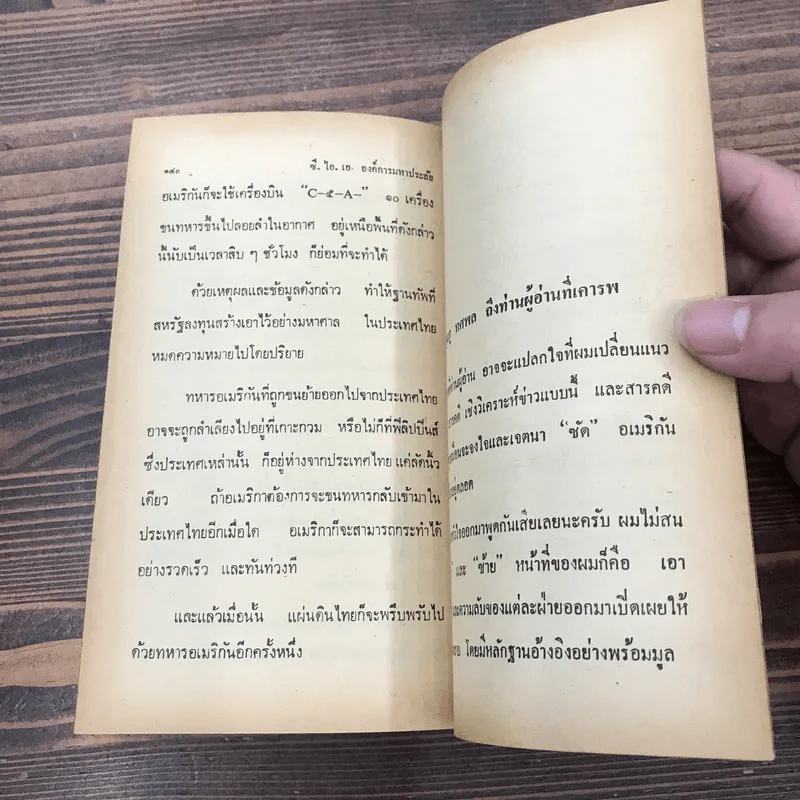 ๑๔๐ ซี. ไอ. เอ. องค์การมหาประลัย
อเมริกันก็จะใช้เครื่องบิน “C–๕–A–” ๑๐ เครื่อง
ขนทหารขึ้นไปลอยลำในอากาศ อยู่เหนือพื้นที่ดังกล่าว
นี้นับเป็นเวลาสิบ ๆ ชั่วโมง ก็ย่อมที่จะทำได้
ด้วยเหตุผลและข้อมูลดังกล่าว ทำให้ฐานทัพที่
สหรัฐลงทุนสร้างเอาไว้อย่างมหาศาล ในประเทศไทย
หมดความหมายไปโดยปริยาย
ทหารอเมริกันที่ถูกขนย้ายออกไปจากประเทศไทย
อาจจะถูกลำเลียงไปอยู่ที่เกาะกวม หรือไม่ก็ที่ฟิลิปปินส์
ซึ่งประเทศเหล่านั้น ก็อยู่ห่างจากประเทศไทย แค่ลัดนิ้ว
เดียว ถ้าอเมริกาต้องการจะขนทหารกลับเข้ามาใน
ประเทศไทยอีกเมื่อใด อเมริกาก็จะสามารถกระทำได้
อย่างรวดเร็ว และทันท่วงที
และแล้วเมื่อนั้น แผ่นดินไทยก็จะพรึบพรับไป
ด้วยทหารอเมริกันอีกครั้งหนึ่ง
ทศพล ถึงท่านผู้อ่านที่เคารพ
ท่านผู้อ่าน อาจจะแปลกใจที่ผมเปลี่ยนแนว
เชิงวิเคราะห์ข่าวแบบนี้ และสารคดี
จะจงใจและเจตนา “ซัด” อเมริกัน
ออกมาพูดกันเสียเลยนะครับ ผมไม่สน
และ “ซ้าย” หน้าที่ของผมก็คือ เอา
และความลับของแต่ละฝ่ายออกมาเปิดเผยให้
โดยมีหลักฐานอ้างอิงอย่างพร้อมมูล